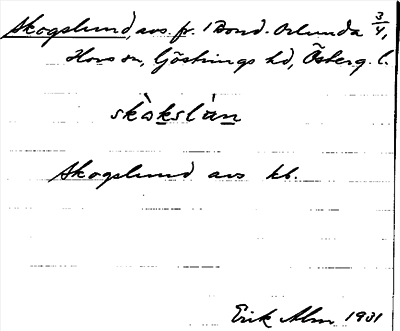 Skogslund, avs. fr. 1 Bond. Orlunda 3/4,
Hovs sn, Göstrings hd, Österg. l.
skògslun
Skogslund avs kb.
Erik Alm 1931